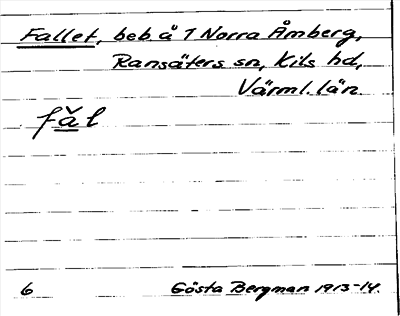 Fallet, beb å 1 Norra Åmberg,
Ransäters sn, Kils hd,
Värml. län
fǎl
6 Gösta Bergman 1913-14.